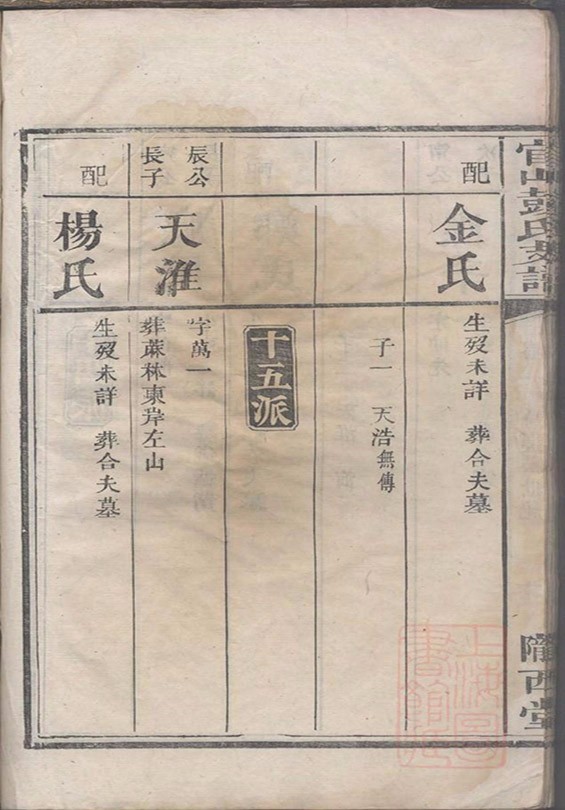 官山彭氏支譜
隴西堂
配
金氏
生歿未詳 葬合夫墓
子一 天浩無傳
十五派
辰公長子
天淮
字萬一
葬蔴林東岸左山
配
楊氏
生歿未詳 葬合夫墓
上海圖書館藏